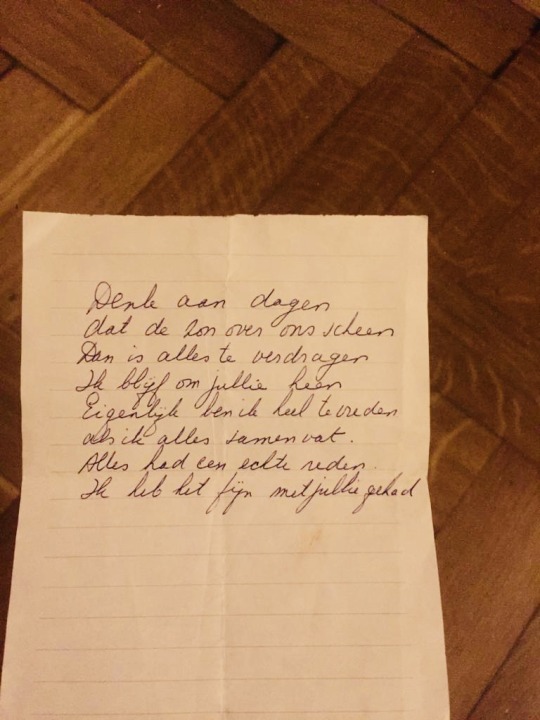 Denk aan dagen
dat de zon over ons scheen
Dan is alles te verdragen
Ik blijf om jullie heen
Eigenlijk ben ik heel tevreden
als ik alles samenvat.
Alles had een echte reden.
Ik heb het fijn met jullie gehad